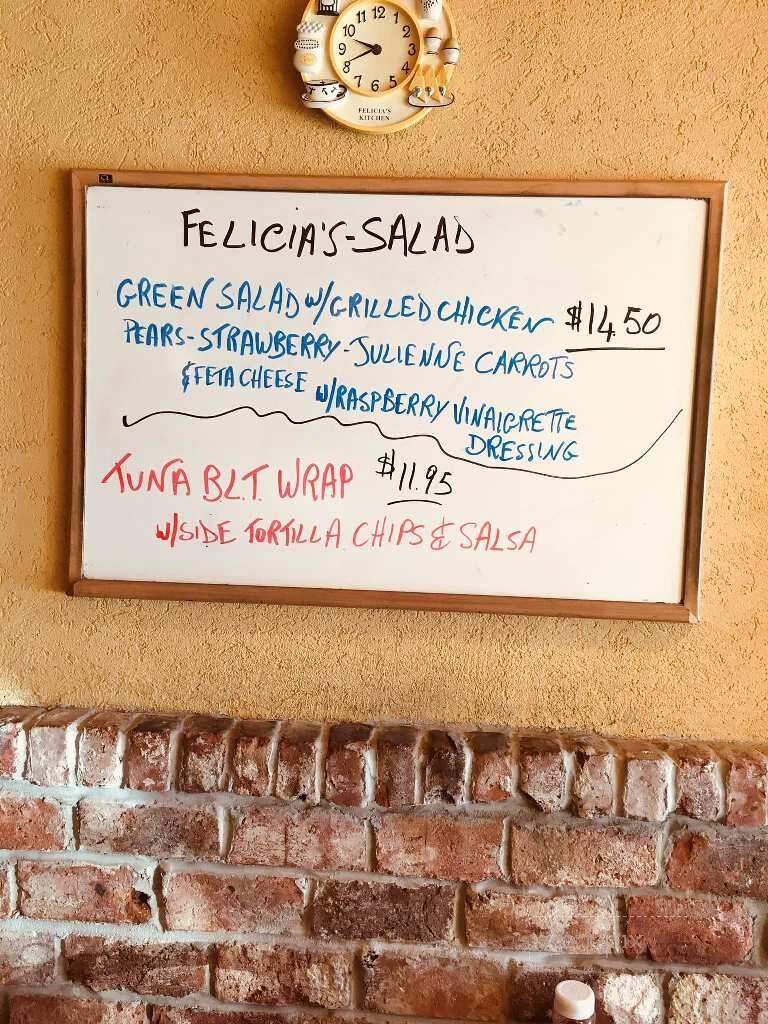 12
1
2
3
4
5
6
7
8
9
10
11
FELICIA'S
KITCHEN
FELICIA'S-SALAD
GREEN SALAD W/GRILLED CHICKEN $14.50
PEARS-STRAWBERRY-JULIENNE CARROTS
&FETA CHEESE W/RASPBERRY VINAIGRETTE
DRESSING
TUNA B.L.T. WRAP $11.95
W/SIDE TORTILLA CHIPS & SALSA